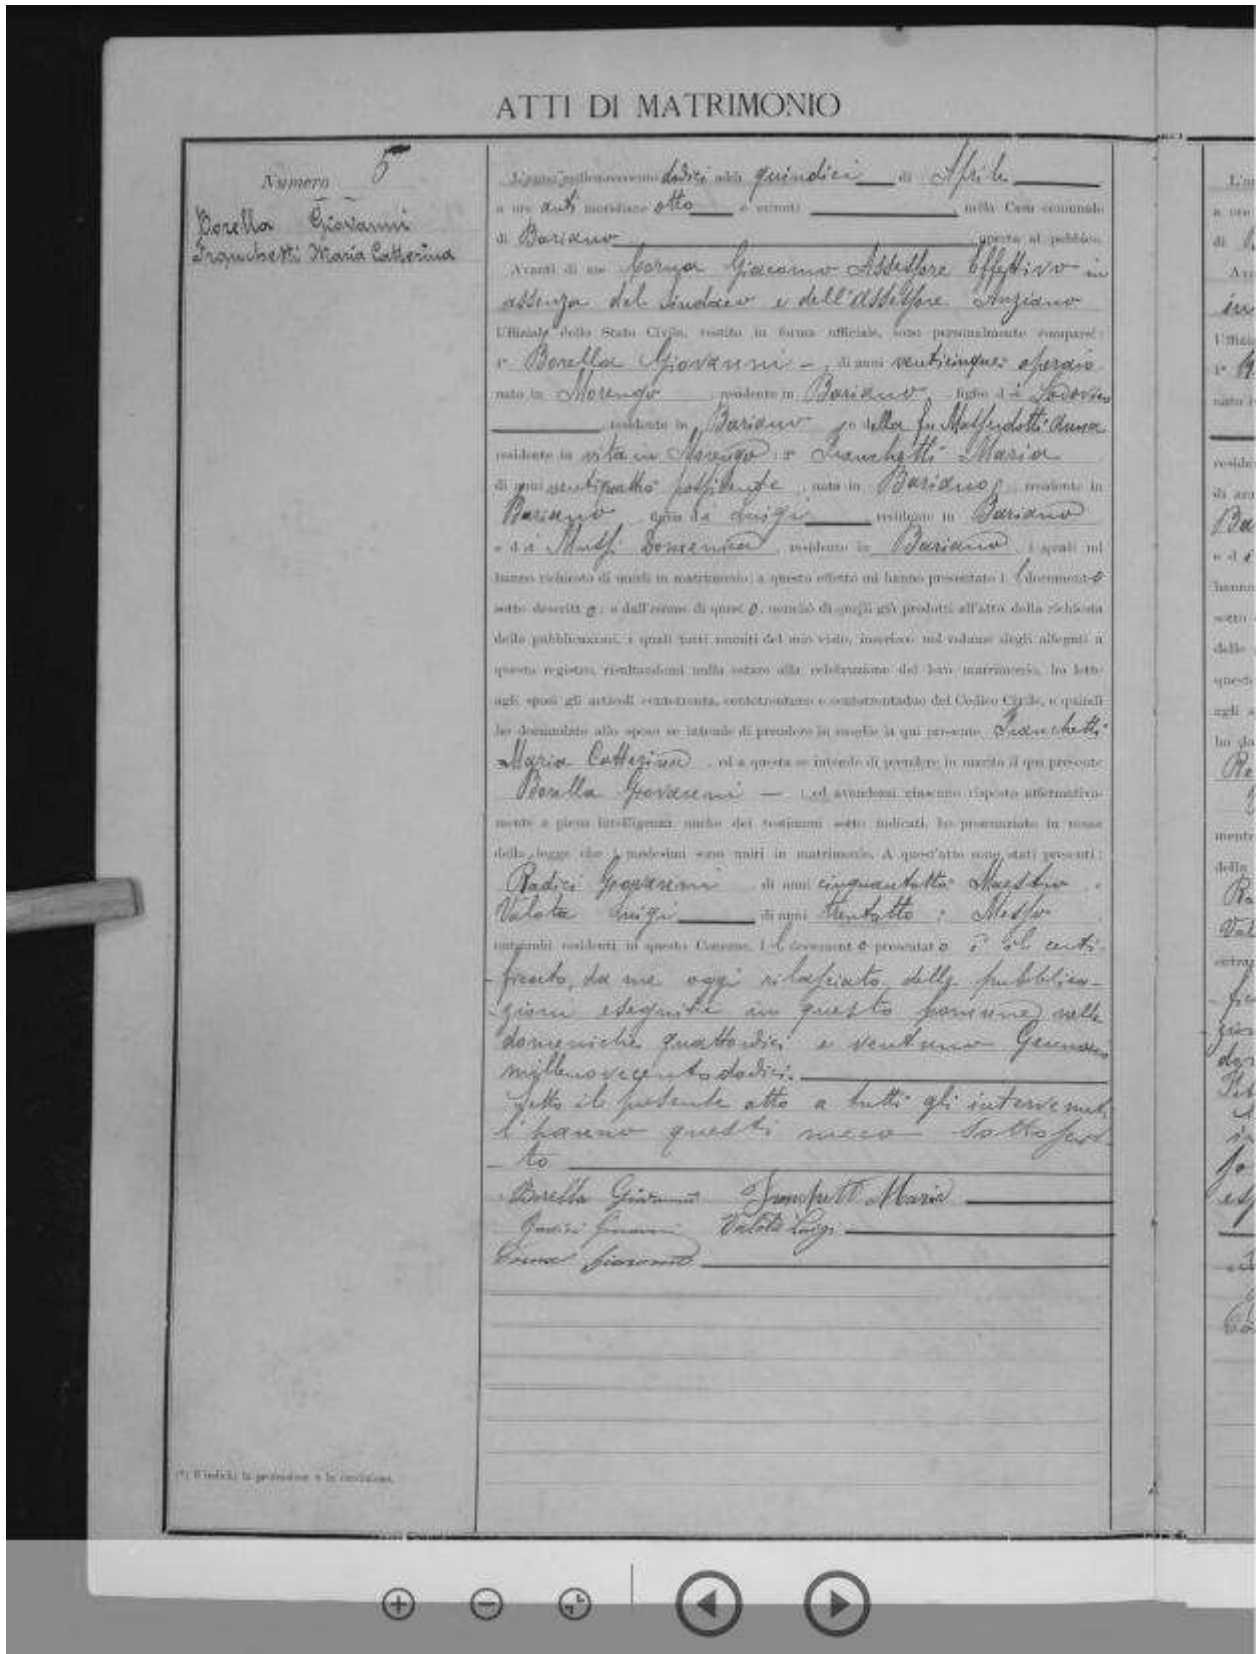 ATTI DI MATRIMONIO
Numero 5
Borella Giovanni
Franchetti Maria Catterina
L'anno millenovecento dodici addì quindici di Aprile
a ore anti meridiane otto e minuti nella Casa comunale
di Bariano aperta al pubblico.
Avanti di me Giacomo Assessore Effettivo in
assenza del Sindaco e dell'Assessore Anziano
Uffiziale dello Stato Civile, vestito in forma ufficiale, sono personalmente comparsi:
1° Borella Giovanni - di anni venticinque operaio
nato in Morengo residente in Bariano figlio di Lodovico
residente in Bariano e della fu Anna
residente in vita in Morengo 2° Franchetti Maria
di anni ventiquattro possidente nata in Bariano, residente in
Bariano figlia di Luigi residente in Bariano
e di Domenica residente in Bariano, i quali mi
hanno richiesto di unirli in matrimonio; a questo effetto mi hanno presentato il documento
sotto descritto; e dall'esame di questo, nonchè di quelli già prodotti all'atto della richiesta
delle pubblicazioni, i quali tutti muniti del mio visto, inserisco nel volume degli allegati a
questo registro, risultandomi nulla ostare alla celebrazione del loro matrimonio, ho letto
agli sposi gli articoli centotrenta, centotrentuno e centotrentadue del Codice Civile, e quindi
ho domandato allo sposo se intende di prendere in moglie la qui presente Franchetti
Maria Catterina, ed a questa se intende di prendere in marito il qui presente
Borella Giovanni - ; ed avendomi ciascuno risposto affermativa-
mente a piena intelligenza anche dei testimoni sotto indicati, ho pronunziato in nome
della legge che i medesimi sono uniti in matrimonio. A quest'atto sono stati presenti:
Radici Giovanni di anni cinquantotto Maestro e
Valota Luigi di anni trentotto : Messo
entrambi residenti in questo Comune. Il documento presentato è il certi-
-ficato, da me oggi rilasciato delle pubblica-
-zioni eseguite in questo Comune nelle
domeniche quattordici e ventuno Gennaio
millenovecentododici.
Letto il presente atto a tutti gli intervenuti
l'hanno questi meco sottoscrit-
-to
Borella Giovanni Franchetti Maria
Radici Giovanni Valota Luigi
Giacomo
(*) Si indichi la professione o la condizione.